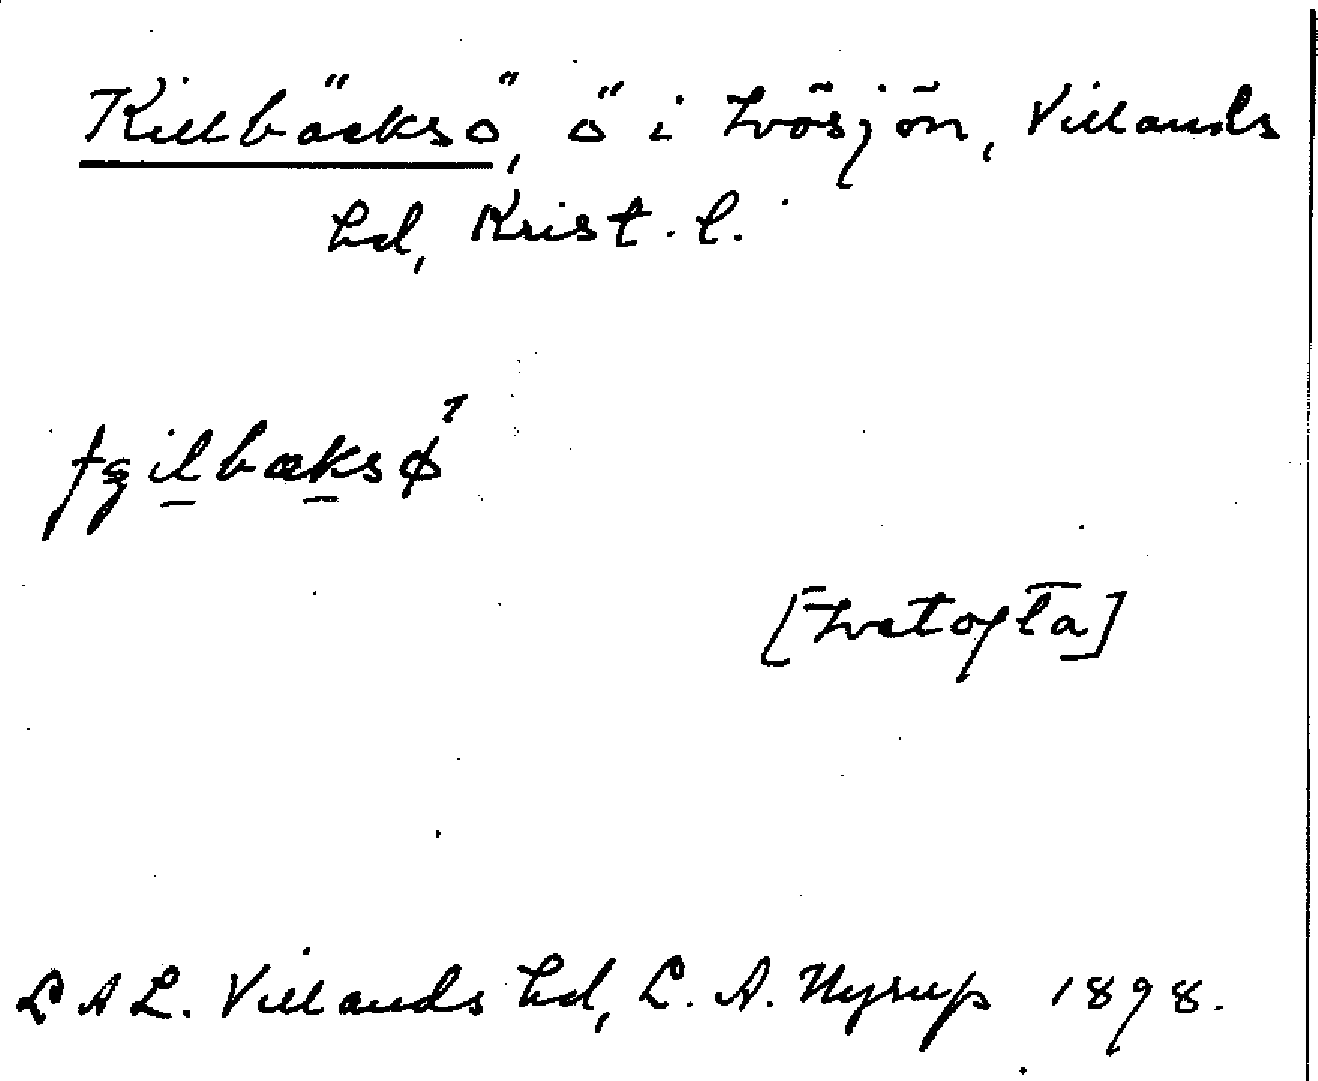 Killbäcksö, ö i Ivösjön, Villands
hd, Krist. l.
[Ivetofta]
L A L. Villands hd, L. A. Nyrup 1898.